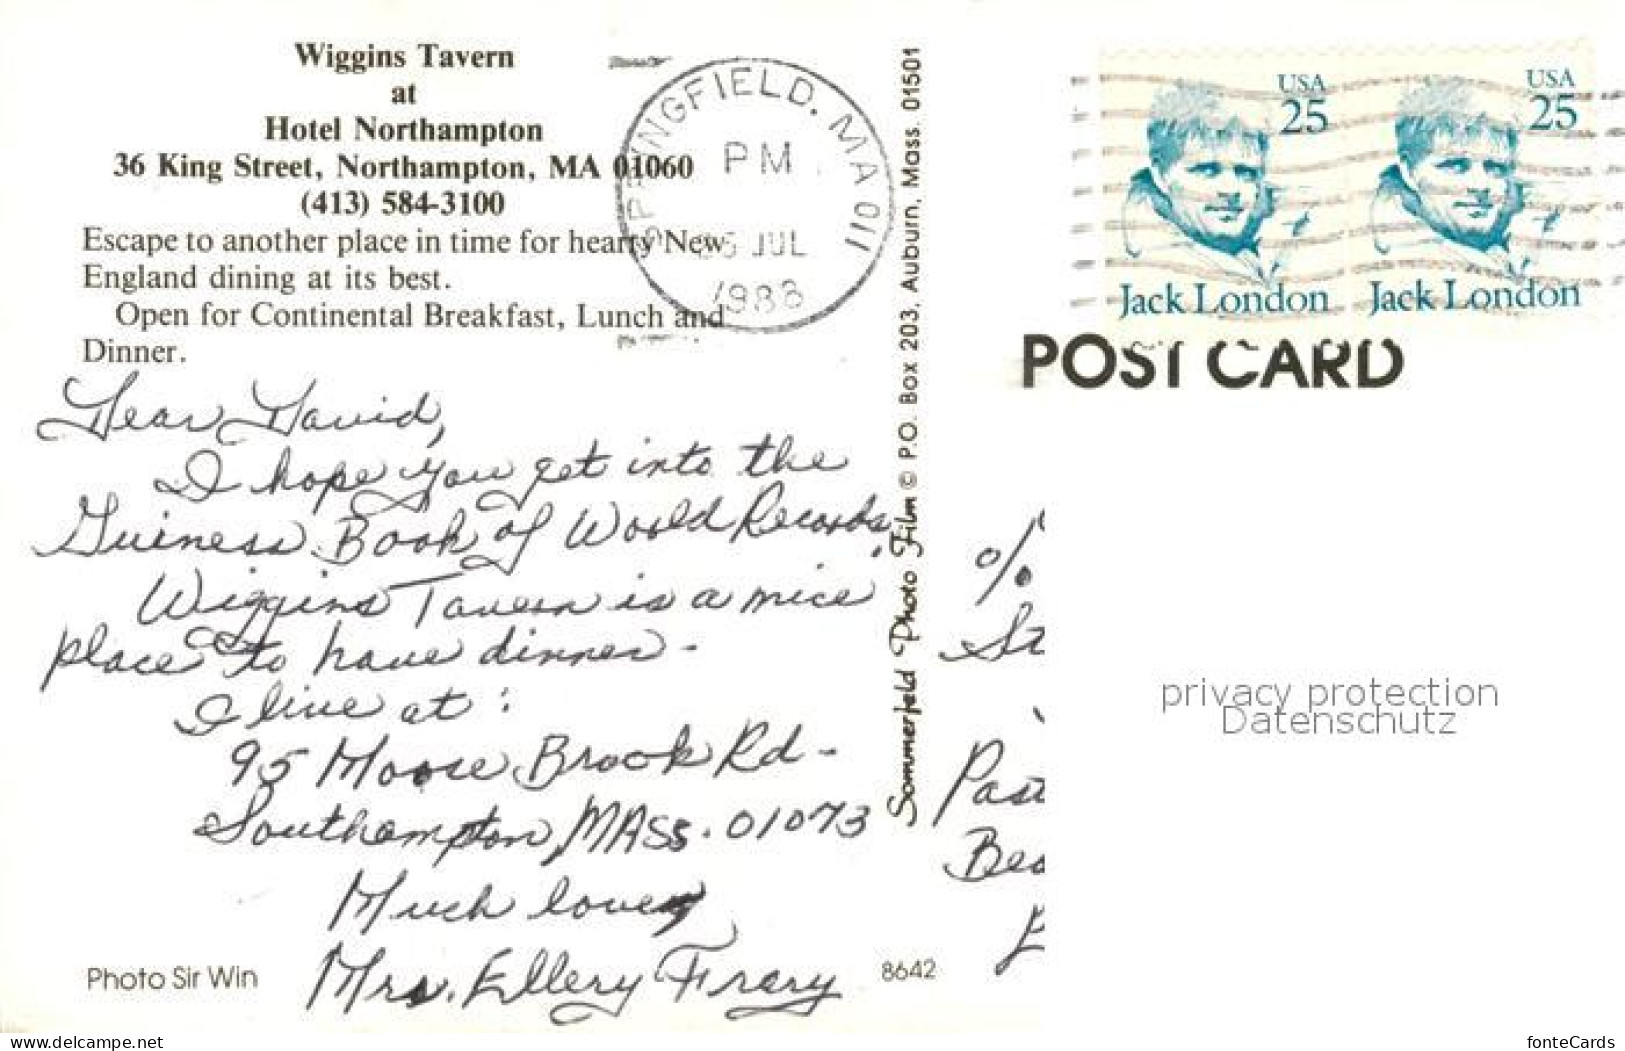 Wiggins Tavern
at
Hotel Northampton
36 King Street, Northampton, MA 01060
(413) 584-3100
Escape to another place in time for hearty New
England dining at its best.
Open for Continental Breakfast, Lunch and
Dinner.
SPRINGFIELD, MA 011
PM
JUL
1988
Dear David,
I hope you get into the
Guiness Book of World Records.
Wiggins Tavern is a nice
place to have dinner-
I live at:
95 Moose Brook Rd-
Southampton, MASS. 01073
Much love,
Mrs. Ellery Frary
Photo Sir Win
8642
Sommerfeld Photo Film © P.O. Box 203, Auburn, Mass. 01501
USA
25
Jack London
USA
25
Jack London
POST CARD
%
St
Past
Bea
privacy protection
Datenschutz
ak-ansichtskarten.de
fonteCards